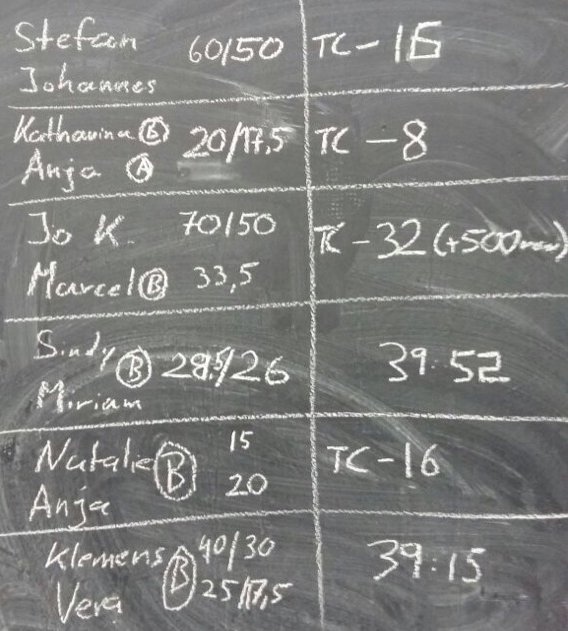 Stefan 60/50 TC - 16
Johannes
Katharina Ⓑ 20/17,5 TC - 8
Anja Ⓐ
Jo K. 70/50 TC - 32 (+500mm)
Marcel Ⓑ 33,5
Sindy Ⓑ /26 39:52
Miriam
Natalie Ⓑ 15 TC - 16
Anja 20
Klemens Ⓑ 40/30 39:15
Vera 25/17,5